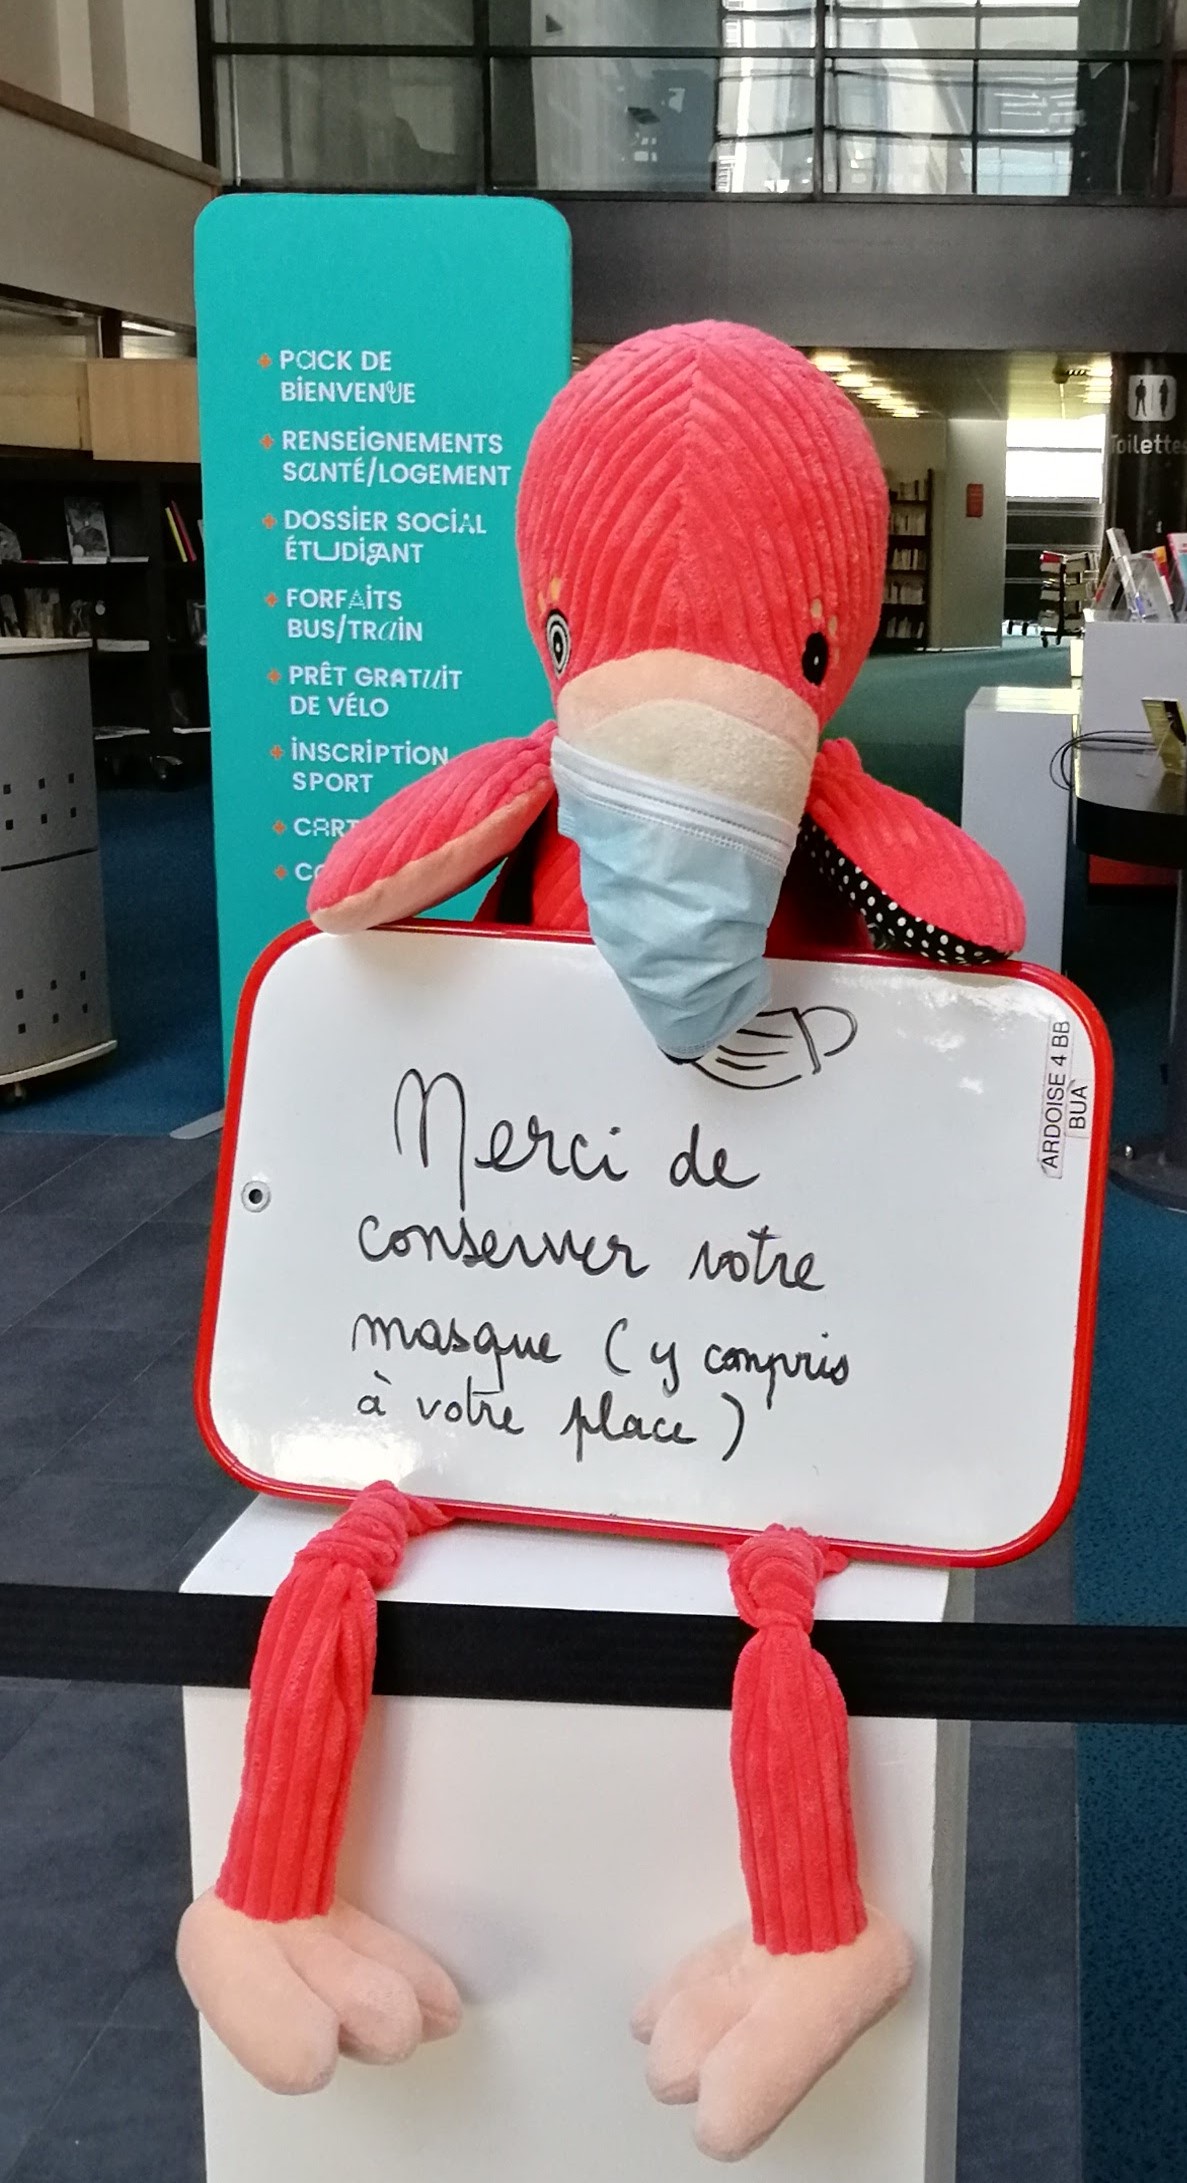 + PACK DE
BIENVENUE
+ RENSEIGNEMENTS
SANTÉ/LOGEMENT
+ DOSSIER SOCIAL
ÉTUDIANT
+ FORFAITS
BUS/TRAIN
+ PRÊT GRATUIT
DE VÉLO
+ INSCRIPTION
SPORT
Toilettes
Merci de
conserver votre
masque (y compris
à votre place)
ARDOISE 4 BB
BUA